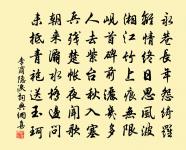 永巷長年怨綺羅
離情終日思風波
湘江竹上痕無限
峴首碑前灑幾多
人去紫臺秋入塞
兵殘楚帳夜聞歌
朝來灞水橋邊問
未抵青袍送玉珂
李商隱淚詞典網書